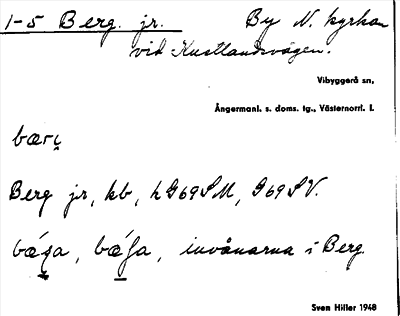 1-5 Berg. jr. By N. kyrkan
vid Kustlandsvägen.
Vibyggerå sn,
Ångermanl. s. doms. tg., Västernorrl. l.
bærị
Berg jr, kb, hG69SM, G69SV.
bæ´ʂa, bæ´ʃa, invånarna i Berg.
Sven Hiller 1948